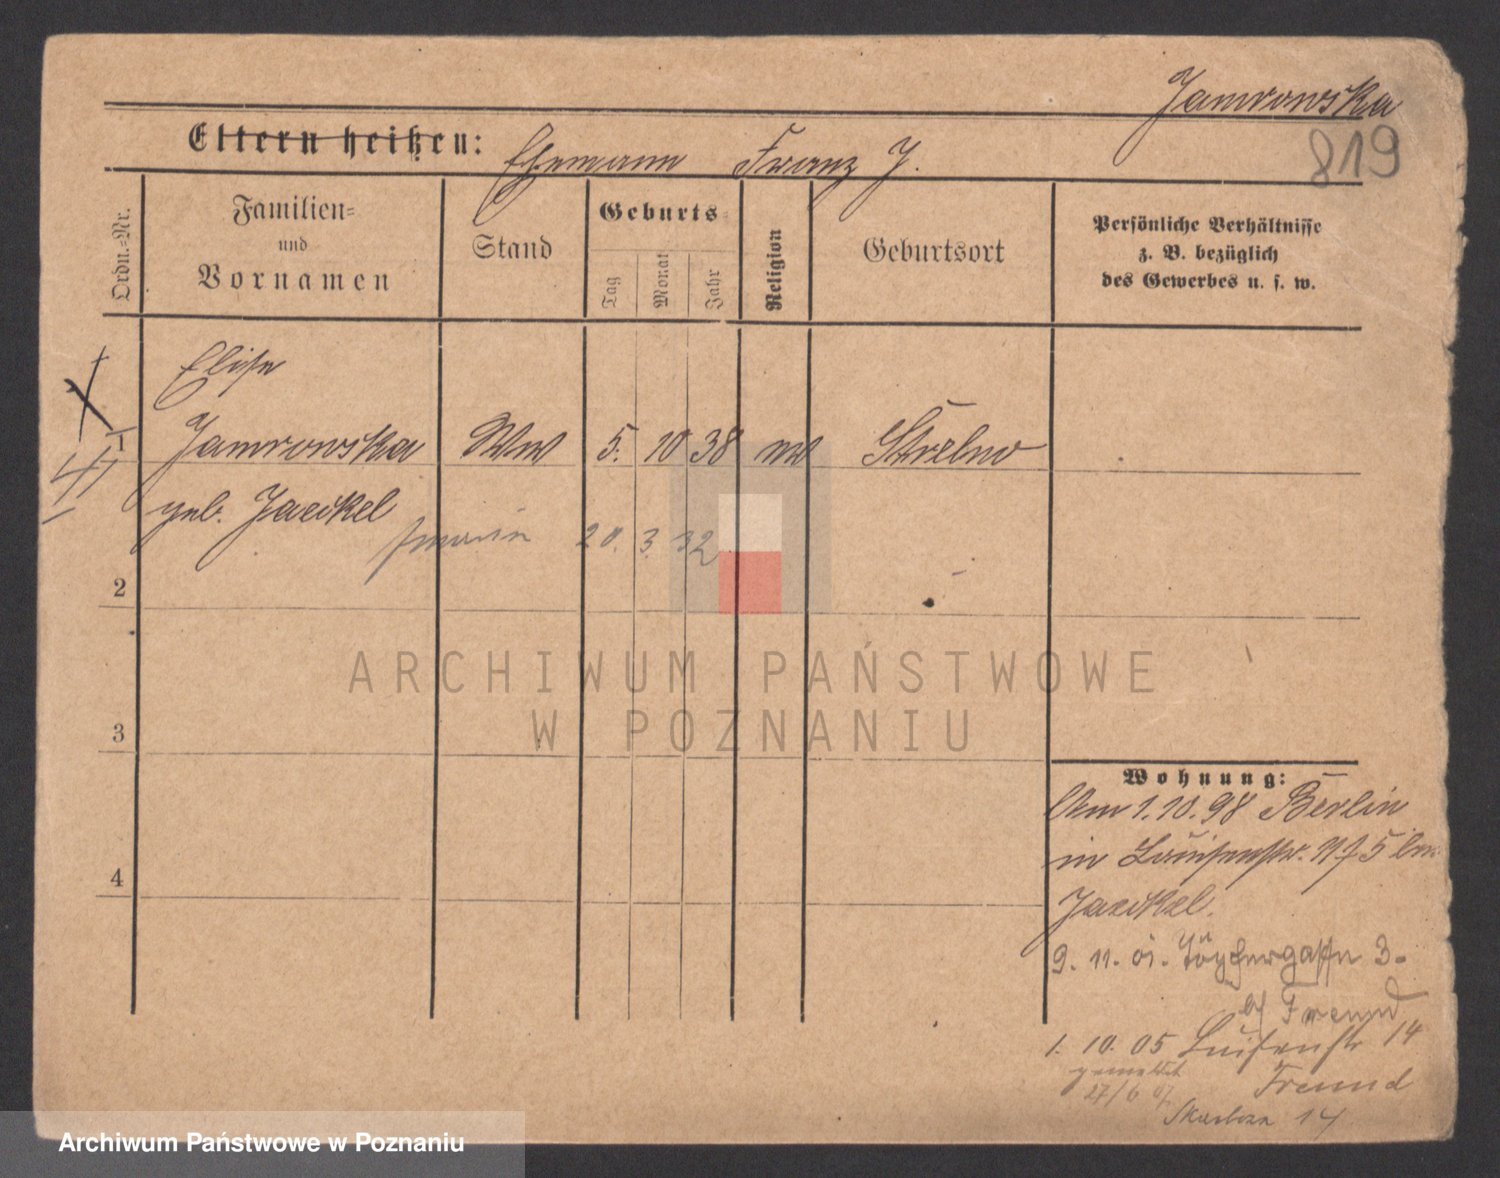 Jamrowska
819
Eltern heißen: Ehemann Franz J.
Ordn.=Nr.
Familien=
und
Vornamen
Stand
Geburts=
Tag
Monat
Jahr
Religion
Geburtsort
Persönliche Verhältnisse
z. B. bezüglich
des Gewerbes u. s. w.
Elise
1 Jamrowska Ww 5. 10 38 Strelno
geb. Jaeckel
20. 3. 32
2
3
4
ARCHIWUM PAŃSTWOWE
W POZNANIU
Wohnung:
Am 1.10.98 Berlin
in Louisenstr. No 5 bei
Jaeckel.
9. 11. 01. Töpfergasse 3.
b/ Freund
1. 10. 05 Luisenstr 14
gemeldet Freund
27/6 07
14
Archiwum Państwowe w Poznaniu